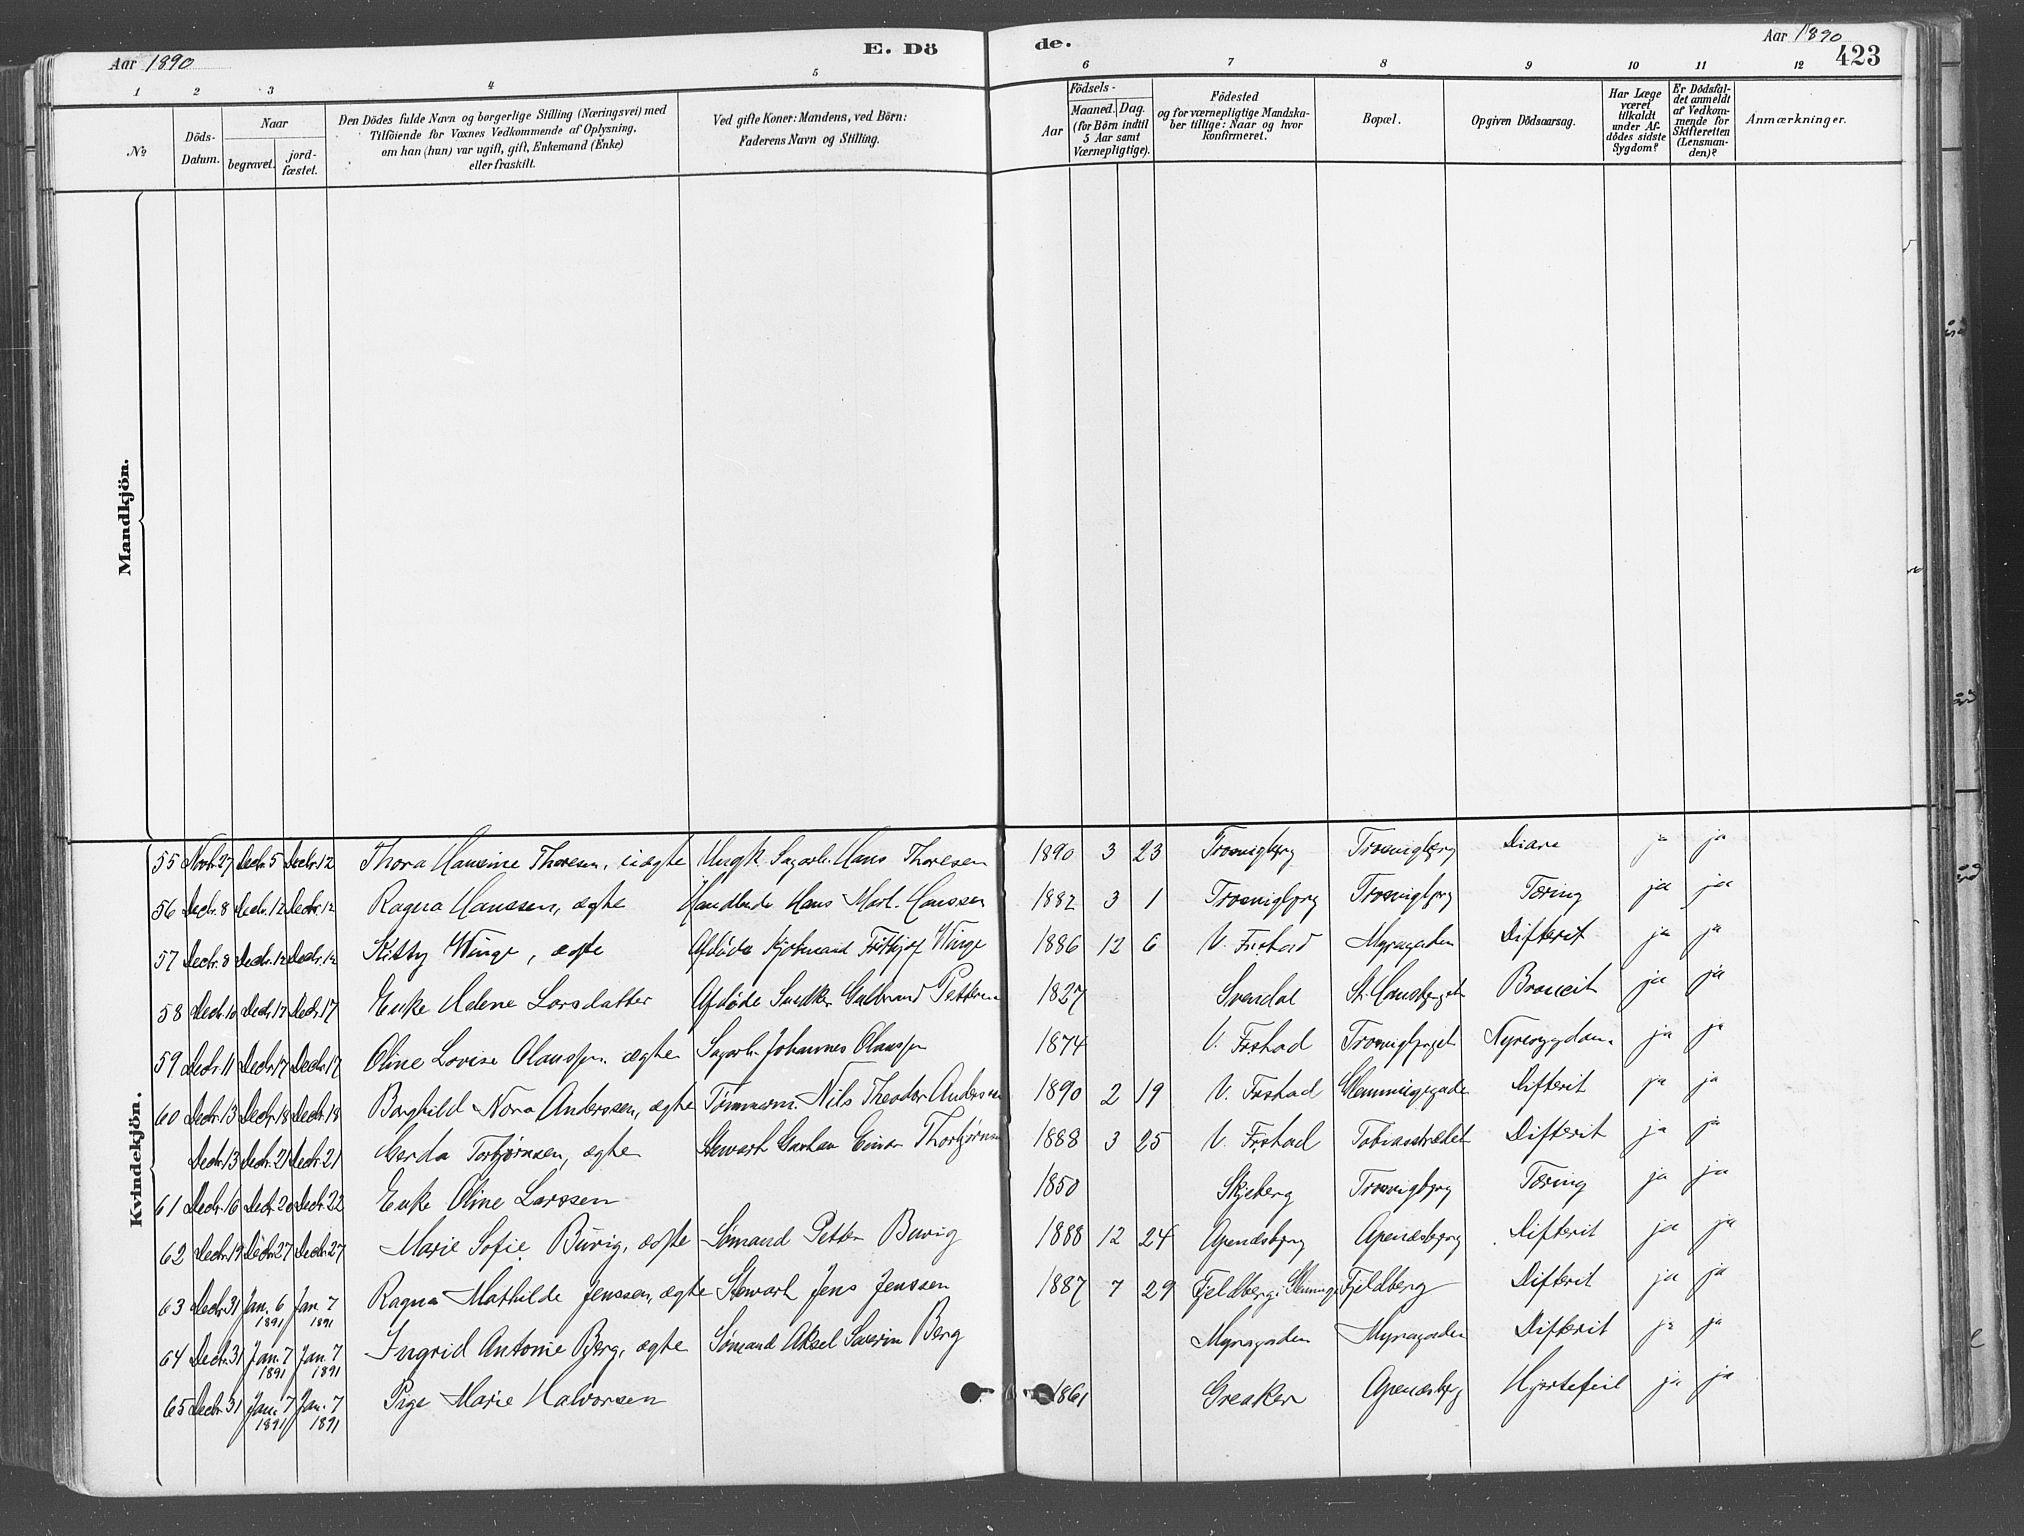 Aar 1890
E. Dö
de.
Aar 1890
423
1 2 3 4 5 6 7 8 9 10 11 12
№
Döds-Datum.
Naar
begravet.
jord-fæstet.
Den Dödes fulde Navn og borgerlige Stilling (Næringsvei) med
Tilföiende for Voxnes Vedkommende af Oplysning,
om han (hun) var ugift, gift, Enkemand (Enke)
eller fraskilt.
Ved gifte Koner: Mandens, ved Börn:
Faderens Navn og Stilling.
Födsels-
Aar
Maaned. Dag.
(for Börn indtil
5 Aar samt
Værnepligtige).
Födested
og for værnepligtige Mandska-
ber tillige: Naar og hvor
konfirmeret.
Bopæl.
Opgiven Dödsaarsag.
Har Læge
været
tilkaldt
under Af-
dödes sidste
Sygdom?
Er Dödsfal-
det anmeldt
af Vedkom-
mende for
Skifteretten
(Lensman-
den)?
Anmærkninger.
Mandkjön.
Kvindekjön.
55 Novbr. 27 Decbr. 5 Decbr. 12 Thora Hansine Thoresen, uægte Ungk. Sagarb. Hans Thoresen 1890 3 23 Trosvigbjerg Trosvigbjerg Diare ja ja
56 Decbr. 8 Decbr. 12 Decbr. 12 Ragna Hanssen, ægte Handlende Hans Hanssen 1882 3 1 Trosvigbjerg Trosvigbjerg Tæring ja ja
57 Decbr. 8 Decbr. 12 Decbr. 12 Kitty Winge, ægte Afdöde Kjöbmand Fritjof Winge 1886 12 6 V. Fr.stad Myragaden Difterit ja ja
58 Decbr. 10 Decbr. 17 Decbr. 17 Enke Helene Larsdatter Afdöde Snedker Gulbrand Pettersen 1827 St. Hansbjerget Broncit ja ja
59 Decbr. 11 Decbr. 17 Decbr. 17 Oline Lovise Olaussen, ægte Sagarb. Johannes Olaussen 1874 V. Frstad Trosvigbjerget Nyresygdom ja ja
60 Decbr. 13 Decbr. 18 Decbr. 18 Borghild Nora Anderssen, ægte Tömmerm. Nils Theodor Andersen 1890 2 19 V. Frstad Glemmigegade Difterit ja ja
Decbr. 13 Decbr. 21 Decbr. 21 Gerda Torbjørnsen, ægte Stewart Einar Thorbjørnsen 1888 3 25 V. Frstad Tobiasstrædet Difterit ja ja
61 Decbr. 16 Decbr. 20 Decbr. 22 Enke Oline Larssen 1850 Skjeberg Trosvigbjerg Tæring ja ja
62 Decbr. 19 Decbr. 27 Decbr. 27 Marie Sofie Buvig, ægte Sömand Petter Buvig 1888 12 24 Apenæsbjerg Apenæsbjerg Difterit ja ja
63 Decbr. 31 Jan. 6 1891 Jan. 7 1891 Ragna Mathilde Jenssen, ægte Stewart Jens Jenssen 1887 7 29 Fjeldberg i Glemminge Fjeldberg Difterit ja ja
64 Decbr. 31 Jan. 7 1891 Jan. 7 1891 Ingrid Antonie Berg, ægte Sömand Aksel Severin Berg Myragaden Myragaden Difterit ja ja
65 Decbr. 31 Jan. 7 1891 Jan. 7 1891 Pige Marie Halvorsen 1861 Greaker Apenæsbjerg Hjertefeil ja ja